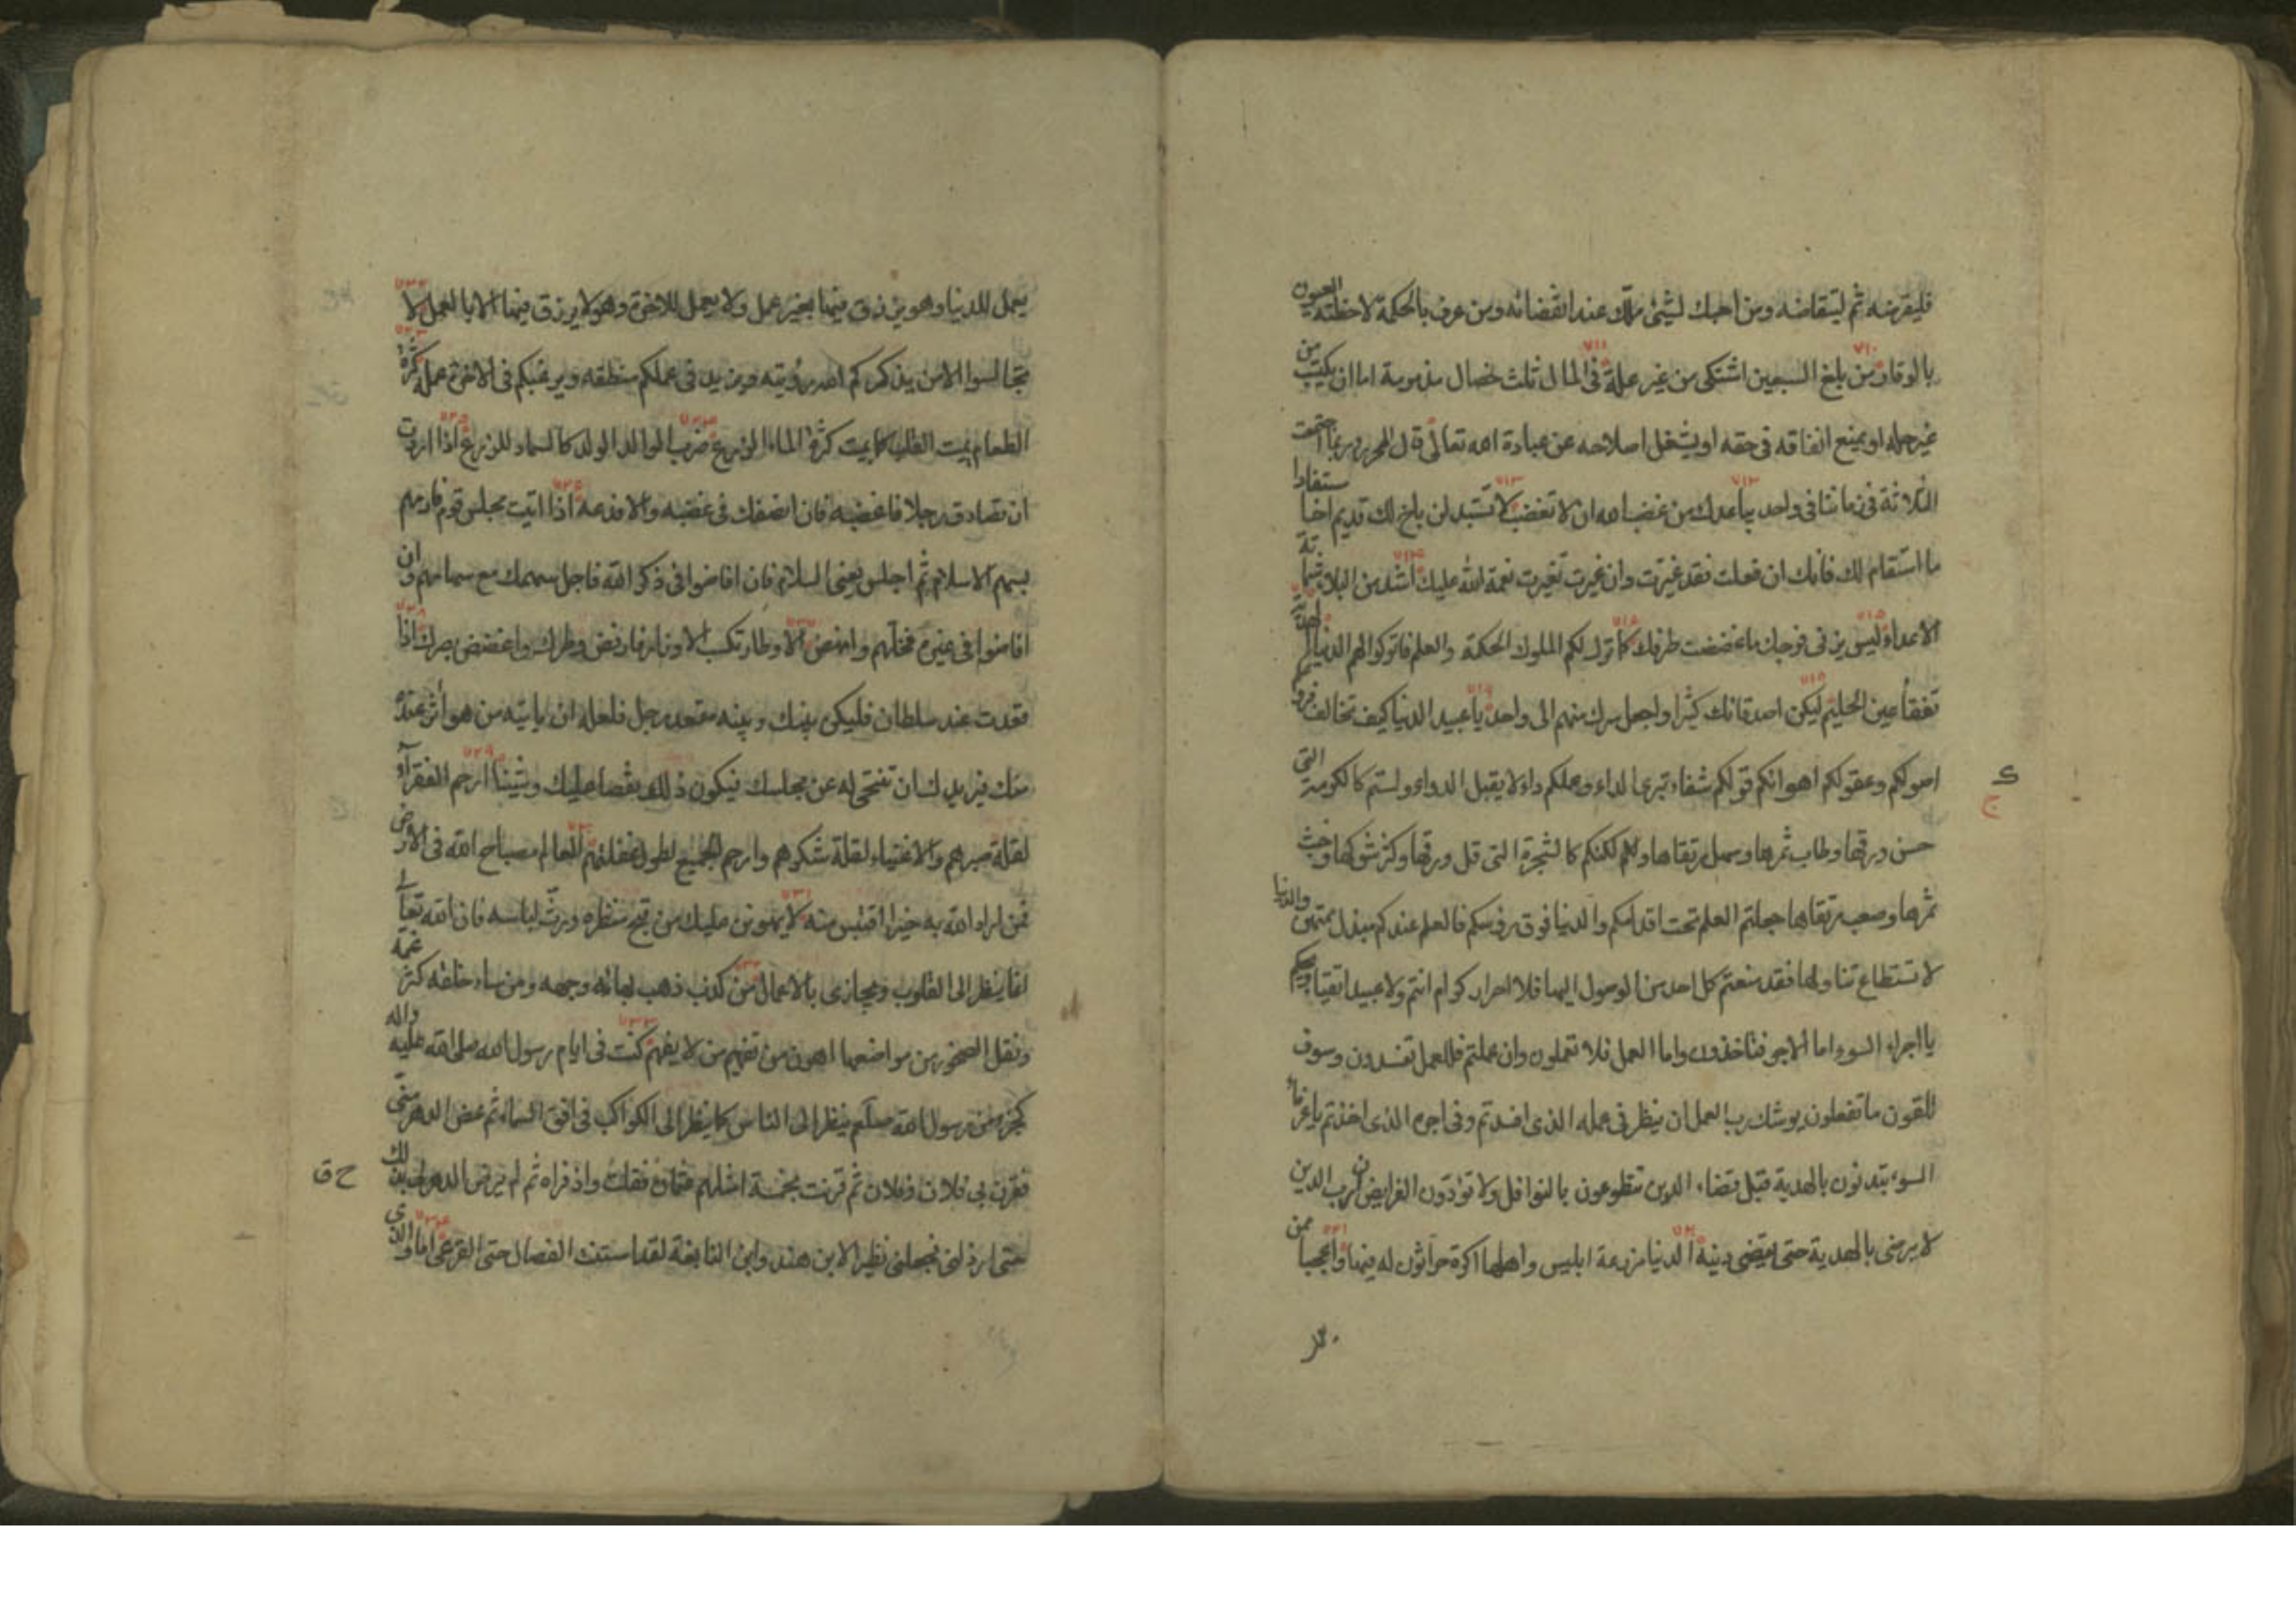 فليقرضه ثم ليتقاضه ومن احبك لشئ ملّك عند انقضائه ومن عرف بالحكمة لاحظته العيون
بالوقار من بلغ السبعين اشتكى من غير علة في المال ثلث خصال مذمومة اما ان يكتسب من
غير حله او يمنع انفاقه في حقه او يشغل اصلاحه عن عبادة الله تعالى قال المحرر وربما اجتمعت
الثلاثة في زماننا في واحد يباعدك من غضب الله ان لا تغضب لا تستبدلن باخ لك قديم اخا مستفادا
ما استقام لك فانك ان فعلت فقد غيرت وان غيرت تغيرت نعمة الله عليك اشد من البلاء شماتة
الاعداء ليس يزني فرجك ما غضضت طرفك كما ترك لكم الملوك الحكمة والعلم فاتركوا لهم الدنيا
تفقأ عين الحليم ليكن اصدقائك كثيرا واجعل سرك منهم الى واحد يا عبيد الدنيا كيف تخالف فروعكم
اصولكم وعقولكم اهوائكم قولكم شفاء يبرئ الداء وعملكم داء لا يقبل الدواء ولستم كالكرمة التي
حسن ورقها وطاب ثمرها وسهل مرتقاها ولكنكم كالشجرة التي قل ورقها وكثر شوكها وخبث
ثمرها وصعب مرتقاها جعلتم العلم تحت اقدامكم والدنيا فوق رؤسكم فالعلم عندكم مبذل ممتهن والدنيا
لا تستطاع تناولها فقد منعتم كل احد من الوصول اليها فلا احرار كرام انتم ولا عبيد اتقياء ويحكم
يا اجراء السوء اما الاجر فتاخذون واما العمل فلا تعملون وان عملتم فللعمل تفسدون وسوف
تلقون ما تفعلون يوشك رب العمل ان ينظر في عمله الذي افسدتم وفي اجره الذي اخذتم يا غرماء
السوء تبتدئون بالهدية قبل قضاء الدين تتطوعون بالنوافل ولا تؤدون الفرايض ان رب الدين
لا يرضى بالهدية حتى يقضى دينه الدنيا مزرعة ابليس واهلها اكرة حراثون له فيها واعجبا ممن
يعمل للدنيا وهو يرزق فيها بغير عمل ولا يعمل للاخرة وهو لا يرزق فيها الا بالعمل لا
تجالسوا الا من يذكركم الله رؤيته ويزيد في عملكم منطقه ويرغبكم في الاخرة عمله كثرة
الطعام يميت القلب كما يميت كثرة الماء الزرع ضرب الوالد الولد كالسماد للزرع اذا اردت
ان تصادق رجلا فاغضبه فان انصفك في غضبه والا فدعه اذا اتيت مجلس قوم فارمهم
بسهم الاسلام ثم اجلس يعني السلام فان افاضوا في ذكر الله فاجل سهمك مع سهامهم وان
افاضوا في غيره فخلهم وانهض الاوطار تكسب الاوزار فارفض وطرك واغضض بصرك اذا
قعدت عند سلطان فليكن بينك وبينه مقعد رجل فلعله ان ياتيه من هو آثر عنده
منك فيريد ان تتنحى له عن مجلسك فيكون ذلك نقصا عليك وشينا ارحم الفقراء
لقلة صبرهم والاغنياء لقلة شكرهم وارحم الجميع لطول غفلتهم العالم مصباح الله في الارض
فمن اراد الله به خيرا اقتبس منه لا يهونن عليك من قبح منظره ورث لباسه فان الله تعالى
انما ينظر الى القلوب ويجازى بالاعمال من كذب ذهب بهائه وجهه ومن ساء خلقه كثر غمه
ونقل الصخور من مواضعها اهون من تفهيم من لا يفهم كنت في ايام رسول الله صلى الله عليه واله
كجزء من رسول الله صلعم ينظر الى الناس كما ينظر الى الكواكب في افق السماء ثم غض الدهر مني
فقرن بي فلان وفلان ثم قرنت بخمسة امثلهم عثمان فقلت واذفراه ثم لم يرض الدهر لي بذلك
حتى ارذلني فجعلني نظير الابن هند وابن النابغة لقد استنت الفصال حتى القرعى اما والذي
ح ق